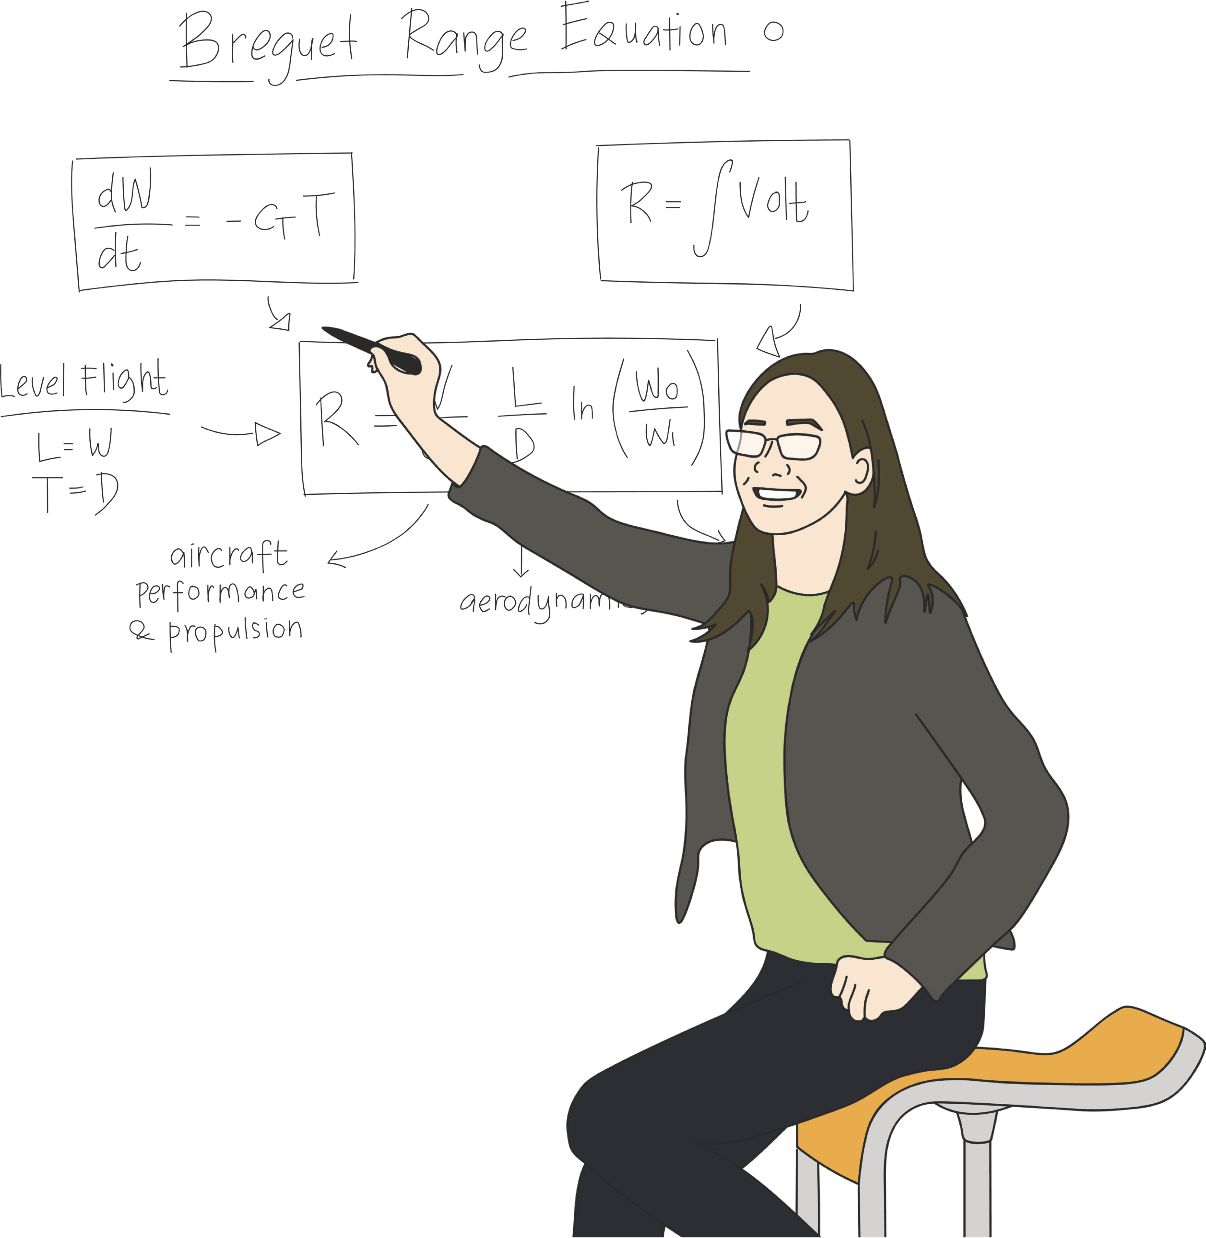 Breguet Range Equation o
dW/dt = - CT T
R = ∫ Volt
Level Flight
L = W
T = D
R = V L/D ln (Wo/Wi)
aircraft
performance
& propulsion
aerodynamics